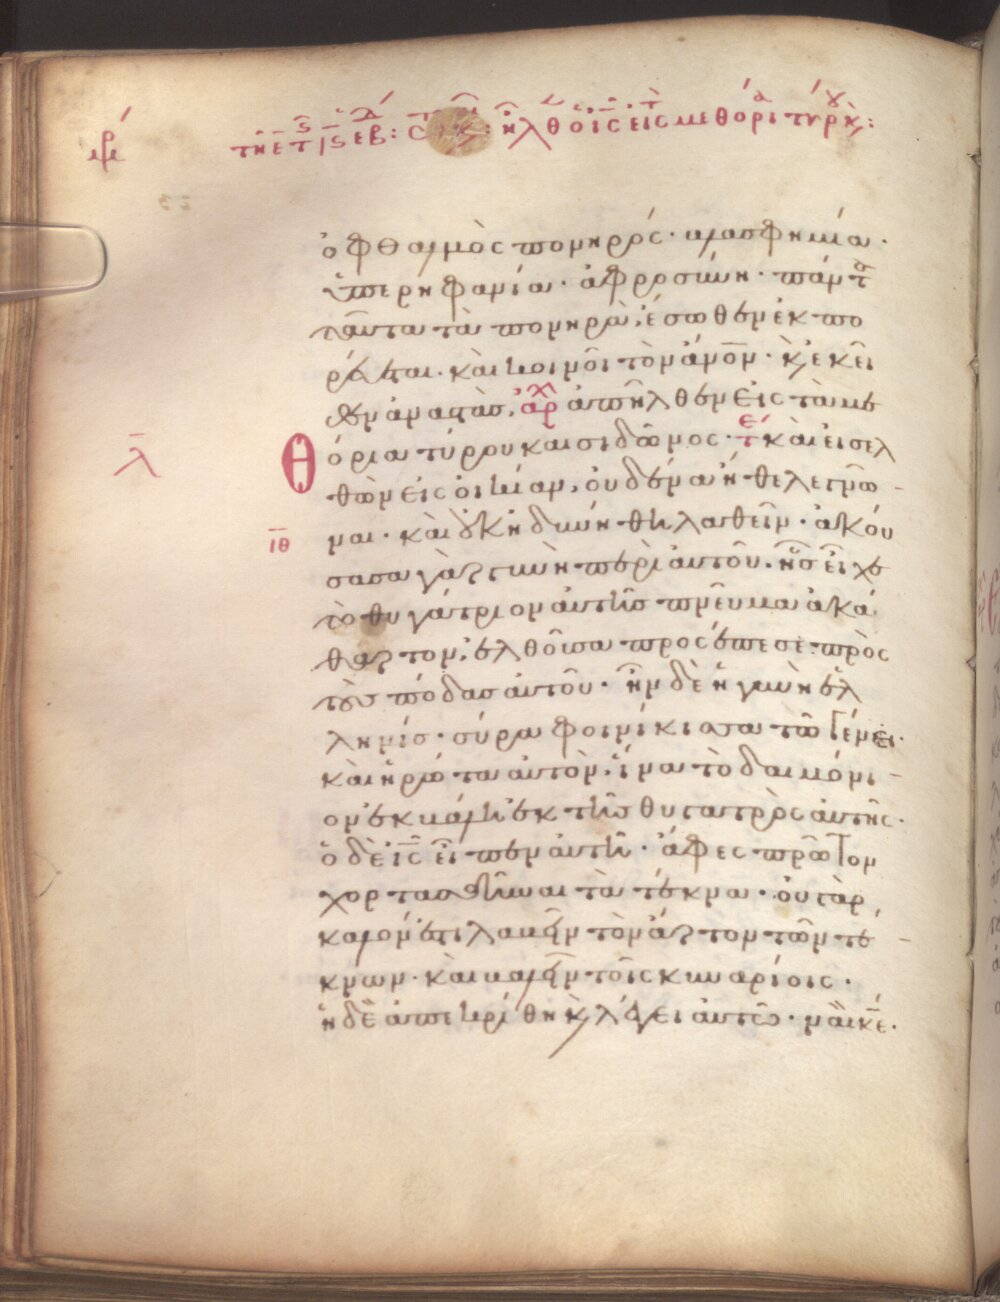 ὀφθαλμὸς πονηρός· βλασφημία·
ὑπερηφανία· ἀφροσύνη· πάντα
ταῦτα τὰ πονηρὰ, ἔσωθεν ἐκπο
ρεύεται· καὶ κοινοῖ τὸν ἄνον· κ ἐκεῖ
θεν ἀναστὰσ, ἀρχ ἀπῆλθεν εἰς τὰ με
θόρια τύρου καὶ σιδῶνος· τε καὶ εἰσελ
λ
θὼν εἰς οἰκίαν, οὐδένα ἤθελε γνῶ
ιθ
ναι· καὶ οὐκ ἠδυνήθη λαθεῖν· ἀκού
σασα γὰρ γυνὴ περὶ αὐτοῦ. ἧσ εἶχε
τὸ θυγάτριον αὐτῆς πνεῦμα ἀκά
θαρτον, ἐλθοῦσα προσέπεσε πρὸς
τοὺς πόδασ αὐτοῦ· ἦν δὲ ἡ γυνὴ ἑλ
ληνίσ· σύρα φοινίκισσα τῶ γένει·
καὶ ἠρώτα αὐτὸν, ἵνα τὸ δαιμόνι
ον ἐκβάλη ἐκ τῆς θυγατρὸς αὐτῆς·
ὁ δὲ ις εἶπεν αὐτῆ· ἄφες πρῶτον
χορτασθῆναι τὰ τέκνα· οὐ γὰρ
καλόν ἐστι λαβεῖν τὸν ἄρτον τῶν τέ
κνων· καὶ βαλεῖν τοῖς κυναρίοις·
ἡ δὲ ἀπεκρίθη κ λέγει αὐτῶ· ναὶ κε·